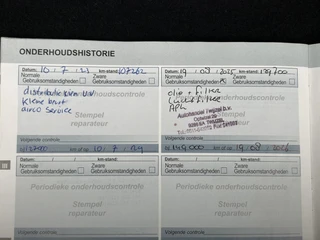 ONDERHOUDSHISTORIE
Datum: 10 / 7 / 23 km-stand: 107262
Normale Gebruiksomstandigheden
Zware Gebruiksomstandigheden
distributie riem
kleine beurt
airco service
Stempel
reparateur
Volgende controle
of 10 / 7 /
Datum: 19 / 08 / 2025 km-stand: 129700
Normale Gebruiksomstandigheden
Zware Gebruiksomstandigheden
olie + filter
APK
Stempel
reparateur
Volgende controle
149.000 km of 19 / 08 / 2026
Datum: km-stand:
Normale Gebruiksomstandigheden
Zware Gebruiksomstandigheden
Periodieke onderhoudscontrole
Stempel
reparateur
Datum: km-stand:
Normale Gebruiksomstandigheden
Zware Gebruiksomstandigheden
Periodieke onderhoudscontrole
Stempel
reparateur